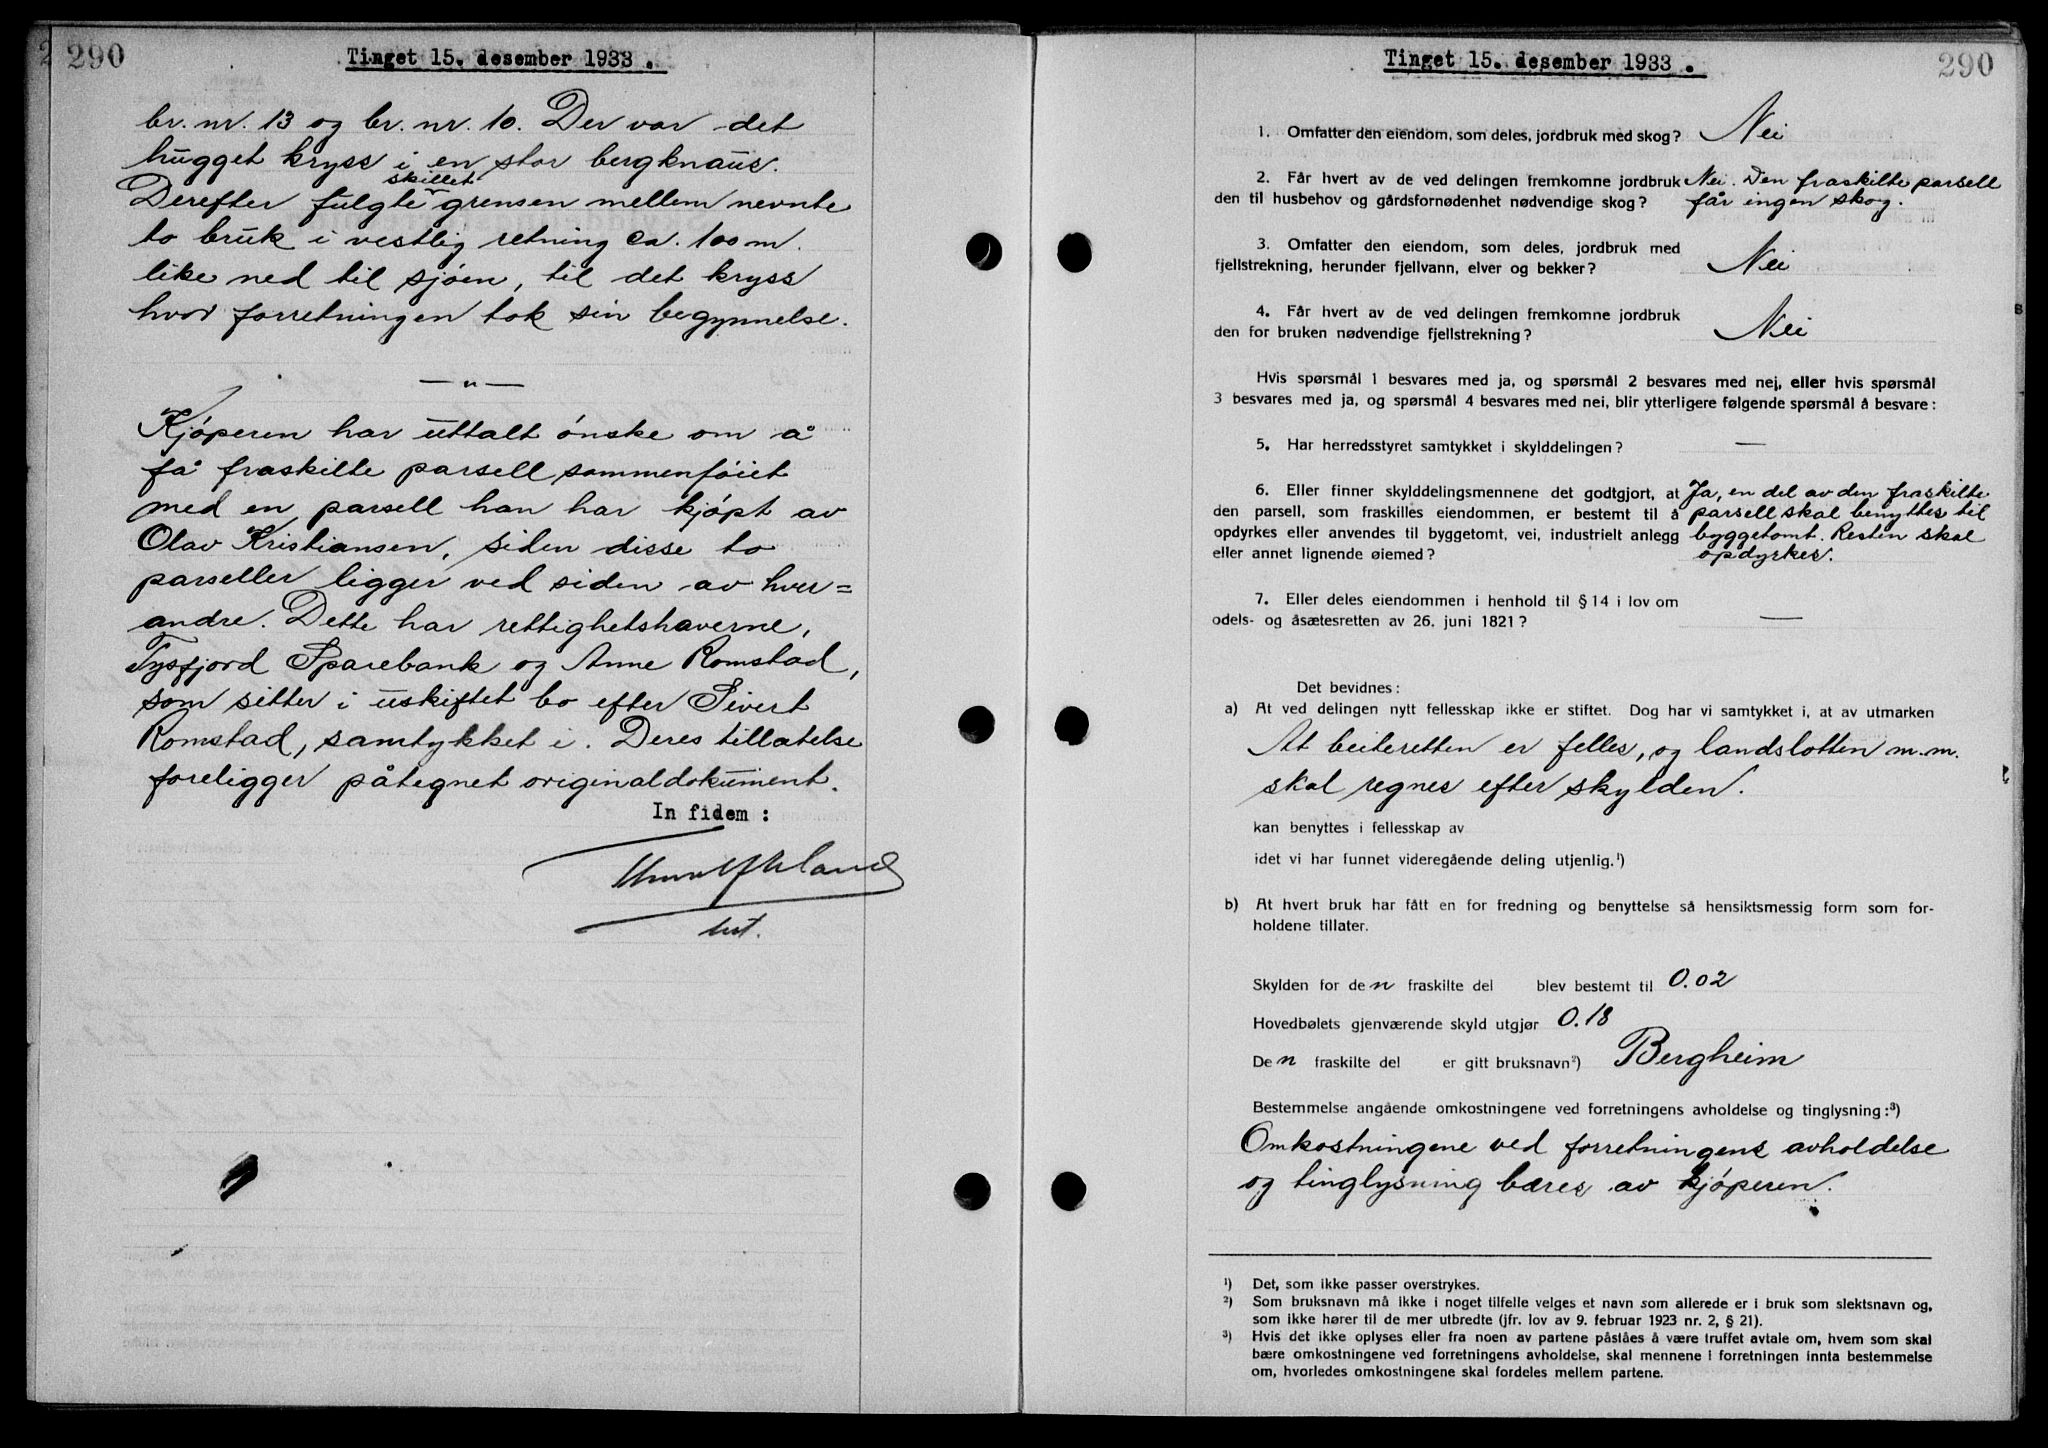 290
Tinget 15. desember 1933.
br. nr. 13 og br. nr. 10. Der var det
hugget kryss i en stor bergknaus.
skillet
Derefter fulgte grensen mellem nevnte
to bruk i vestlig retning ca. 100 m.
like ned til sjøen, til det kryss
hvor forretningen tok sin begynnelse.
— " —
Kjøperen har uttalt ønske om å
få fraskilte parsell sammenføiet
med en parsell han har kjøpt av
Olav Kristiansen, siden disse to
parseller ligger ved siden av hver=
andre. Dette har rettighetshaverne,
Tysfjord Sparebank og Anne Romstad,
som sitter i uskiftet bo efter Sivert
Romstad, samtykket i. Deres tillatelse
foreligger påtegnet originaldokument.
In fidem :
Tinget 15. desember 1933.
290
1. Omfatter den eiendom, som deles, jordbruk med skog? Nei
2. Får hvert av de ved delingen fremkomne jordbruk Nei. Den fraskilte parsell
den til husbehov og gårdsfornødenhet nødvendige skog? får ingen skog.
3. Omfatter den eiendom, som deles, jordbruk med
fjellstrekning, herunder fjellvann, elver og bekker? Nei
4. Får hvert av de ved delingen fremkomne jordbruk
den for bruken nødvendige fjellstrekning? Nei
Hvis spørsmål 1 besvares med ja, og spørsmål 2 besvares med nej, eller hvis spørsmål
3 besvares med ja, og spørsmål 4 besvares med nei, blir ytterligere følgende spørsmål å besvare:
5. Har herredsstyret samtykket i skylddelingen? —
6. Eller finner skylddelingsmennene det godtgjort, at Ja, en del av den fraskilte
den parsell, som fraskilles eiendommen, er bestemt til å parsell skal benyttes til
opdyrkes eller anvendes til byggetomt, vei, industrielt anlegg byggetomt. Resten skal
eller annet lignende øiemed? opdyrkes.
7. Eller deles eiendommen i henhold til § 14 i lov om
odels- og åsætesretten av 26. juni 1821? —
Det bevidnes:
a) At ved delingen nytt fellesskap ikke er stiftet. Dog har vi samtykket i, at av utmarken
At beiteretten er felles, og landslotten m.m.
skal regnes efter skylden.
kan benyttes i fellesskap av
idet vi har funnet videregående deling utjenlig.¹)
b) At hvert bruk har fått en for fredning og benyttelse så hensiktsmessig form som for-
holdene tillater.
Skylden for den fraskilte del blev bestemt til 0.02
Hovedbølets gjenværende skyld utgjør 0.18
Den fraskilte del er gitt bruksnavn²) Bergheim
Bestemmelse angående omkostningene ved forretningens avholdelse og tinglysning:³)
Omkostningene ved forretningens avholdelse
og tinglysning bæres av kjøperen.
¹) Det, som ikke passer overstrykes.
²) Som bruksnavn må ikke i noget tilfelle velges et navn som allerede er i bruk som slektsnavn og,
som ikke hører til de mer utbredte (jfr. lov av 9. februar 1923 nr. 2, § 21).
³) Hvis det ikke oplyses eller fra noen av partene påståes å være truffet avtale om, hvem som skal
bære omkostningene ved forretningens avholdelse, skal mennene i forretningen innta bestemmelse
om, hvorledes omkostningene skal fordeles mellem partene.